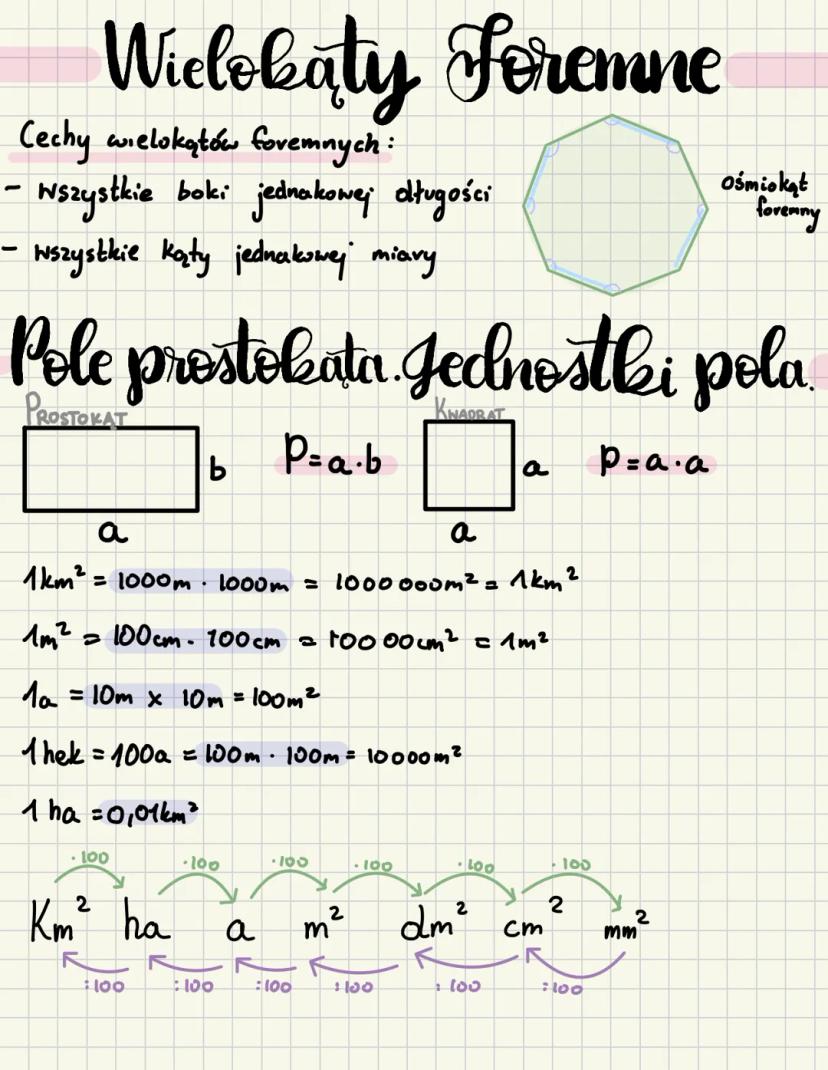 Wielokąty Foremne
Cechy wielokątów foremnych:
- wszystkie boki jednakowej długości
- wszystkie kąty jednakowej miary
Ośmiokąt
foremny
Pole prostokąta. Jednostki pola.
PROSTOKAT
b
P=a·b
a
KWADRAT
a
P=a·a
a
1km² = 1000m · 1000m = 1000000m² = 1km²
1m² = 100cm · 100cm = 10000cm² = 1m²
1a = 10m x 10m = 100m²
1hek = 100a = 100m · 100m = 10000m²
1 ha = 0,01km²
·100 ·100 ·100 ·100 ·100 ·100
Km² ha a m² dm² cm² mm²
:100 :100 :100 :100 :100 :100